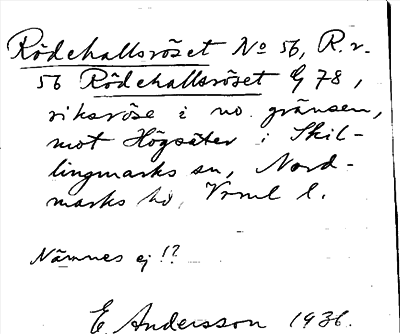 Rödehallsröset No 56, R.r.
56 Rödehallsröset G 78,
riksröse i no. gränsen,
mot Högsäter i Skil-
lingmarks sn, Nord-
marks hd, Vrml l.
Nämnes ej!?
E. Andersson 1936.